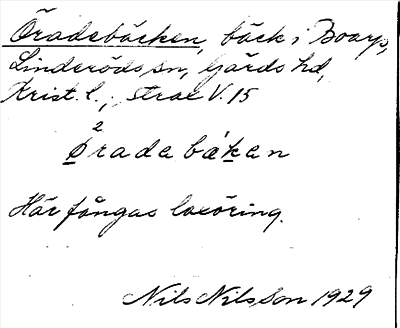 Öradebäcken, bäck i Boarp,
Linderöds sn, Gärds hd,
Krist. l., strax V. 15
2
Øradebækan
Här fångas laxöring.
Nils Nilsson 1929